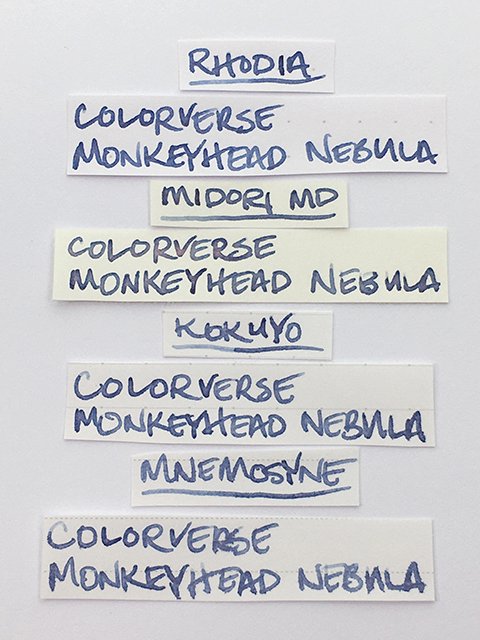 RHODIA
COLORVERSE
MONKEYHEAD NEBULA
MIDORI MD
COLORVERSE
MONKEYHEAD NEBULA
KOKUYO
COLORVERSE
MONKEYHEAD NEBULA
MNEMOSYNE
COLORVERSE
MONKEYHEAD NEBULA